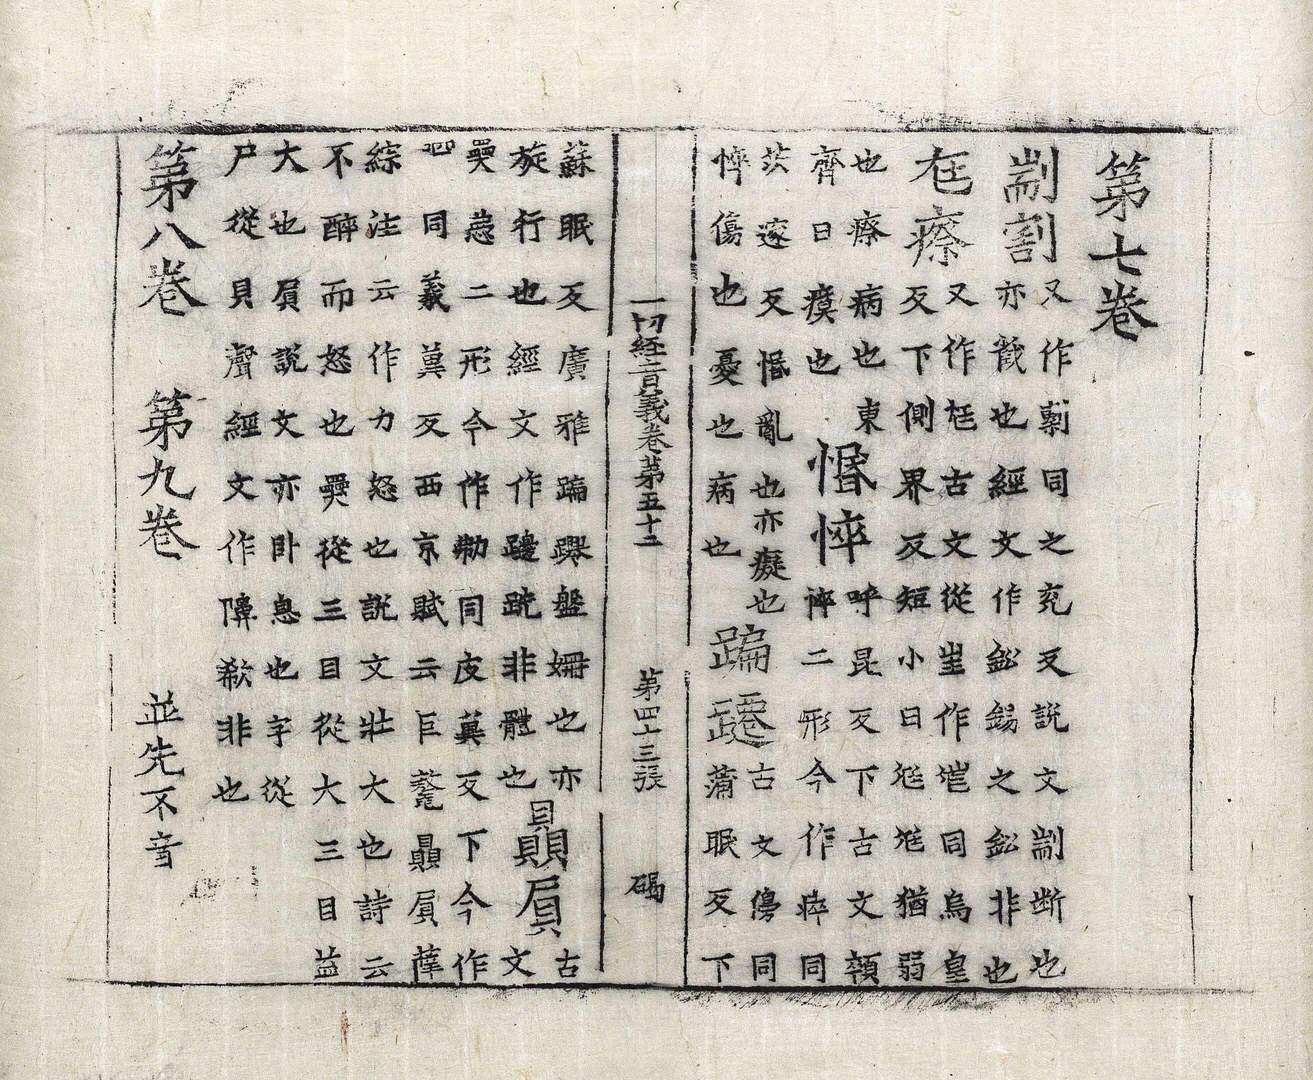 第七卷
剬割
又作剸同之兖反說文剬断也
亦截也經文作鈆錫之鈆非也
尪瘵
又作尫古文從㞷作同烏皇
反下側界反短小曰尪尪猶弱
也瘵病也東
齊曰瘼也
惛悴
呼昆反下古文顇
悴二形今作瘁同
茨遂反惛亂也亦癡也
悴傷也憂也病也
蹁躚
古文同
蒲眠反下
一切經音義卷第五十二 第四十三張 碣
蘇眠反廣雅蹁躚盤姍也亦
旋行也經文作跣非體也
贔屓
古
文
奰二形今作同皮冀反下今作
呬同義冀反西京賦云巨鼇贔屓薛
綜注云作力怒也說文壯大也詩云
不醉而怒也奰從三目從大三目益
大也屓說文亦卧息也字從
尸從貝聲經文作欷非也
第八卷 第九卷 並先不音